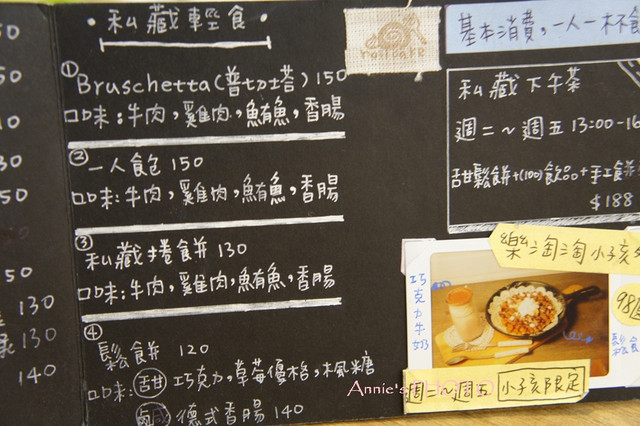 50
50
10
30
50
50
130
130
140
私藏輕食
① Bruschetta(普切塔) 150
口味：牛肉，雞肉，鮪魚，香腸
② 一人食包 150
口味：牛肉，雞肉，鮪魚，香腸
③ 私藏捲餅 130
口味：牛肉，雞肉，鮪魚，香腸
④ 鬆餅 120
口味：甜 巧克力，草莓優格，楓糖
鹹 德式香腸 140
基本消費，一人一杯飲
私藏下午茶
週二～週五 13:00-16
甜鬆餅+(100)飲品+手工餅
$188
樂淘淘小孩
巧克力牛奶
98
鬆餅
週二～週五 小孩限定
Annie's PHOTO